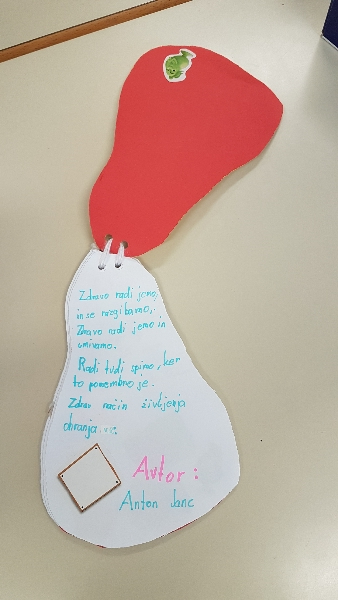 Zdravo radi jemo,
in se razgibamo,
Zdravo radi jemo in
umivamo.
Radi tudi spimo, ker
to pomembno je.
Zdrav način življenja
ohranja
Avtor :
Anton Janc